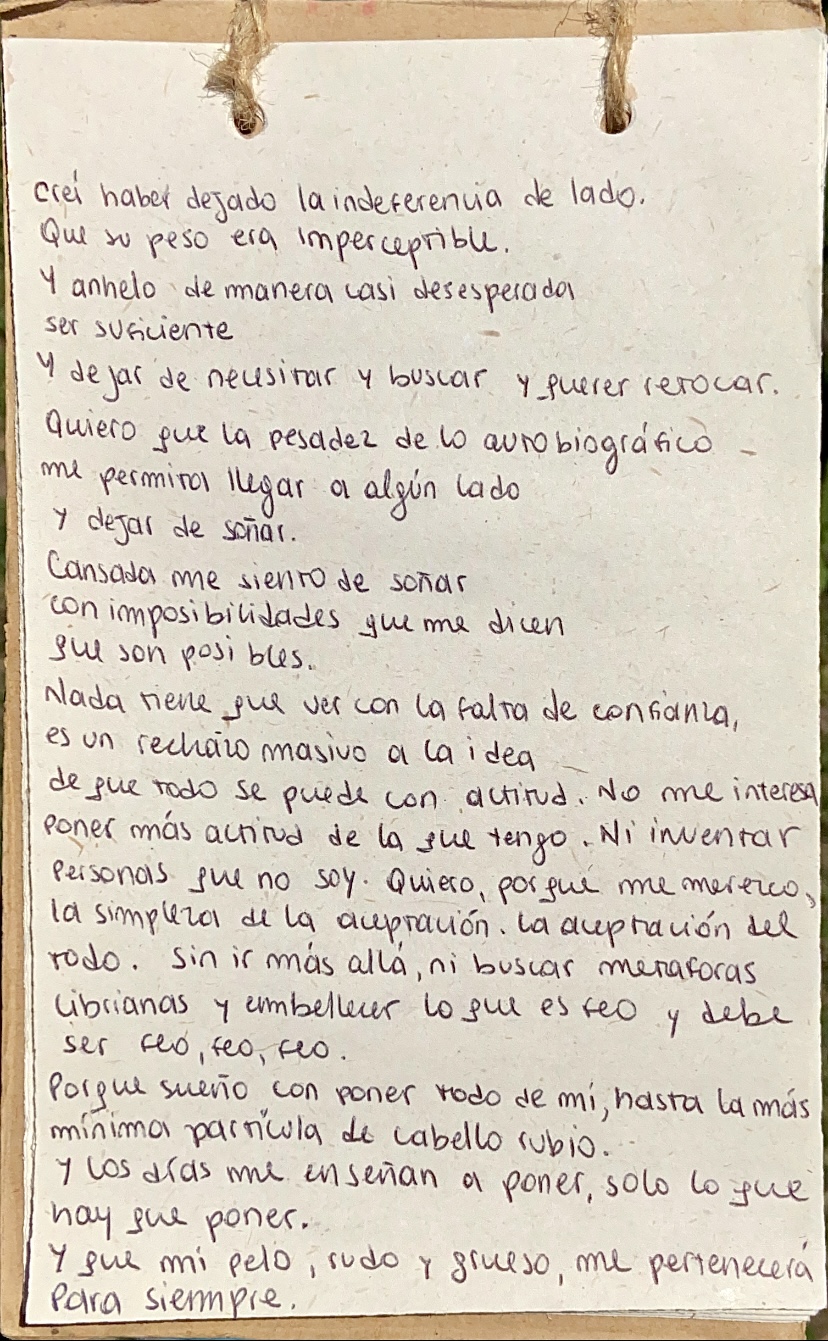 Creí haber dejado la indeferencia de lado.
Que su peso era imperceptible.
Y anhelo de manera casi desesperada
ser suficiente
Y dejar de necesitar y buscar y querer retocar.
Quiero que la pesadez de lo autobiográfico
me permita llegar a algún lado
y dejar de soñar.
Cansada me siento de soñar
con imposibilidades que me dicen
que son posibles.
Nada tiene que ver con la falta de confianza,
es un rechazo masivo a la idea
de que todo se puede con actitud. No me interesa
poner más actitud de la que tengo. Ni inventar
personas que no soy. Quiero, porque me merezco,
la simpleza de la aceptación. La aceptación del
todo. Sin ir más allá, ni buscar metaforas
librianas y embellecer lo que es feo y debe
ser feo, feo, feo.
Porque sueño con poner todo de mí, hasta la más
mínima partícula de cabello rubio.
Y los días me enseñan a poner, solo lo que
hay que poner.
Y que mi pelo, rudo y grueso, me pertenecerá
para siempre.